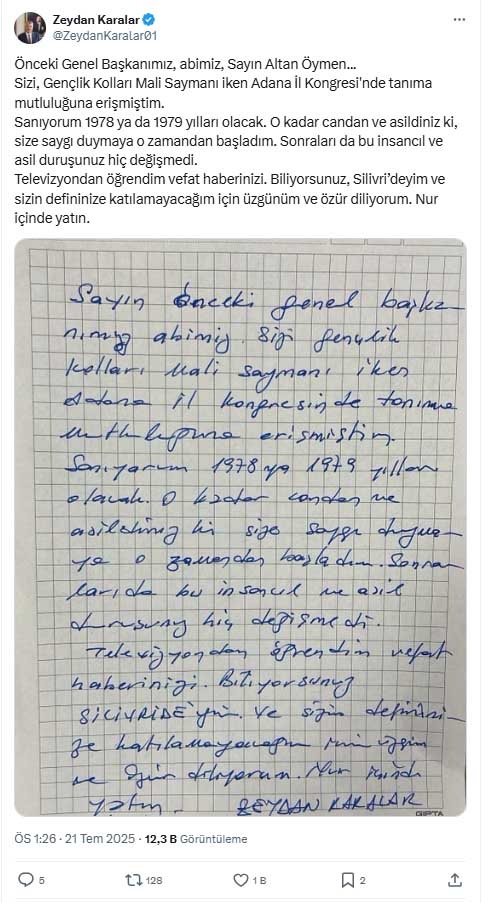 Zeydan Karalar
@ZeydanKaralar01
Önceki Genel Başkanımız, abimiz, Sayın Altan Öymen...
Sizi, Gençlik Kolları Mali Saymanı iken Adana İl Kongresi'nde tanıma
mutluluğuna erişmiştim.
Sanıyorum 1978 ya da 1979 yılları olacak. O kadar candan ve asildiniz ki,
size saygı duymaya o zamandan başladım. Sonraları da bu insancıl ve
asil duruşunuz hiç değişmedi.
Televizyondan öğrendim vefat haberinizi. Biliyorsunuz, Silivri'deyim ve
sizin defininize katılamayacağım için üzgünüm ve özür diliyorum. Nur
içinde yatın.
Sayın önceki genel başka-
nımız abimiz. Sizi gençlik
kolları Mali saymanı iken
Adana il kongresinde tanıma
mutluluğuna erişmiştim.
Sanıyorum 1978 ya 1979 yılları
olacak. O kadar candan ve
asildiniz ki size saygı duyma-
ya o zamandan başladım. Sonra-
ları da bu insancıl ve asil
duruşunuz hiç değişmedi.
Televizyondan öğrendim vefat
haberinizi. Biliyorsunuz
SİLİVRİDE'yim. Ve sizin defnini-
ze katılamayacağım için üzgün
ve özür diliyorum. Nur içinde
yatın. ZEYDAN KARALAR
GIPTA
ÖS 1:26 · 21 Tem 2025 · 12,3 B Görüntüleme
5 128 1 B 2